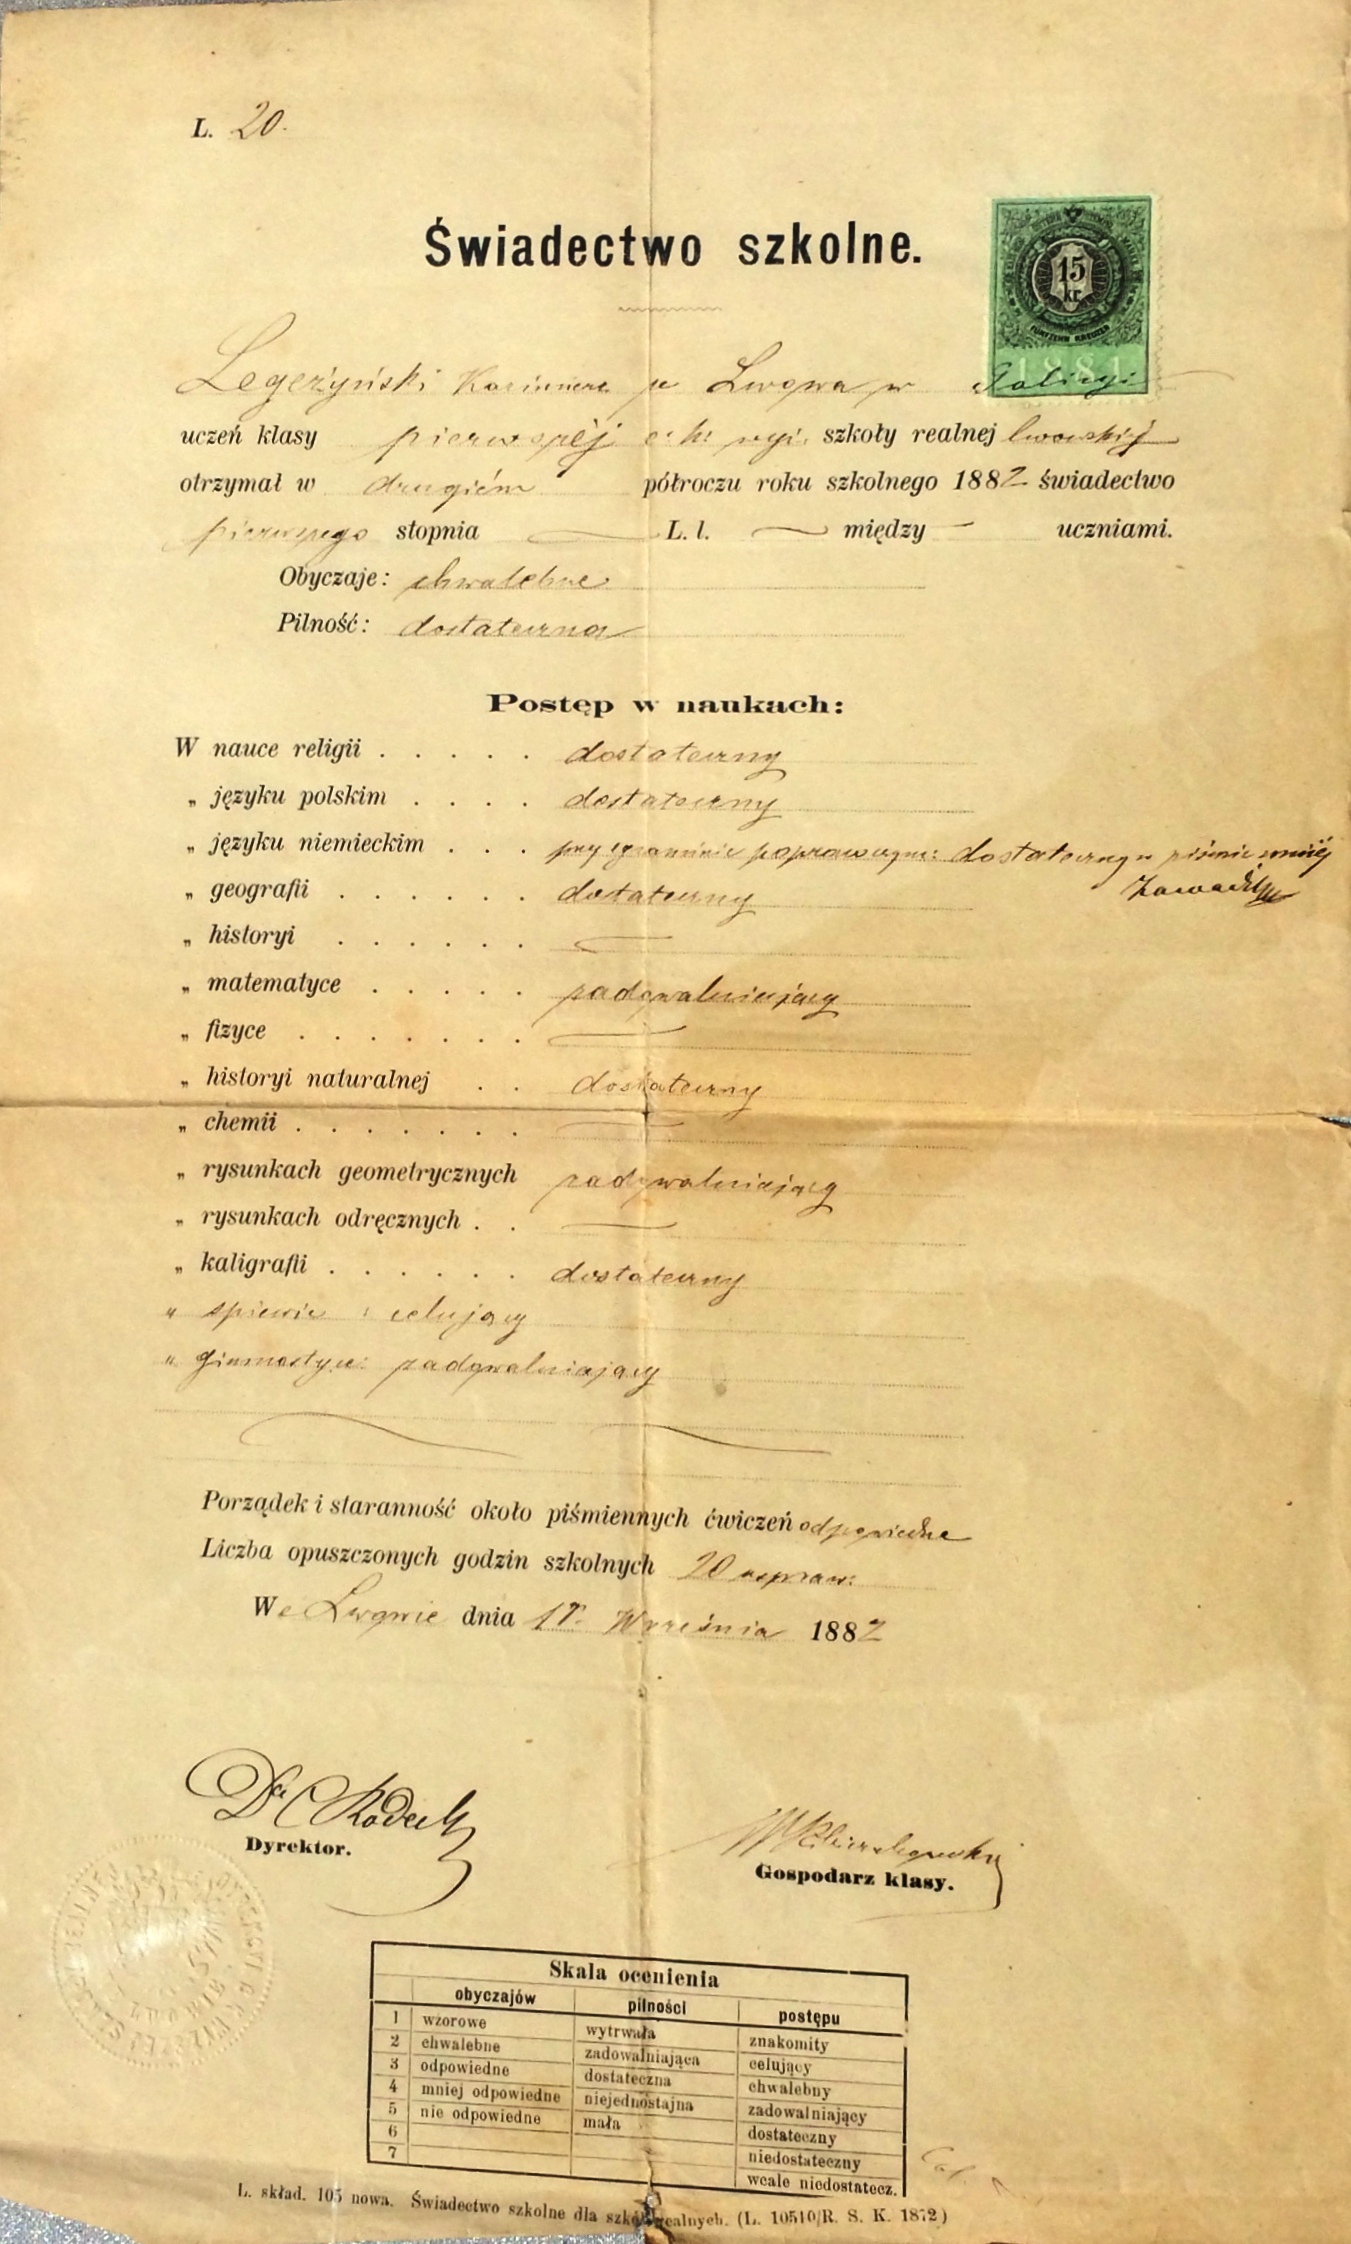 L. 20.
Świadectwo szkolne.
15 kr.
FÜNFZEHN KREUZER
1881
Legeżyński Kazimierz ze Lwowa w Galicyi
uczeń klasy pierwszéj szkoły realnej lwowskiéj
otrzymał w drugiém półroczu roku szkolnego 1882 świadectwo
pierwszego stopnia L. l. między uczniami.
Obyczaje: chwalebne
Pilność: dostateczna
Postęp w naukach:
W nauce religii . . . . . dostateczny
„ języku polskim . . . . dostateczny
„ języku niemieckim . . . przy egzaminie poprawczym: dostateczny w piśmie mniéj
„ geografii . . . . . . dostateczny
„ historyi . . . . . .
„ matematyce . . . . . zadowalniający
„ fizyce . . . . . . .
„ historyi naturalnej . . dostateczny
„ chemii . . . . . . .
„ rysunkach geometrycznych zadowalniający
„ rysunkach odręcznych . .
„ kaligrafii . . . . . . dostateczny
„ śpiewie : celujący
„ gimnastyce: zadowalniający
Porządek i staranność około piśmiennych ćwiczeń odpowiedne
Liczba opuszczonych godzin szkolnych 20 uspraw:
We Lwowie dnia Września 1882
Dr
Dyrektor.
Gospodarz klasy.
Skala ocenienia
obyczajów pilności postępu
1 wzorowe wytrwała znakomity
2 chwalebne zadowalniająca celujący
3 odpowiedne dostateczna chwalebny
4 mniej odpowiedne niejednostajna zadowalniający
5 nie odpowiedne mała dostateczny
6 niedostateczny
7 wcale niedostatecz.
L. skład. 105 nowa. Świadectwo szkolne dla szkół realnych. (L. 10510/R. S. K. 1872)